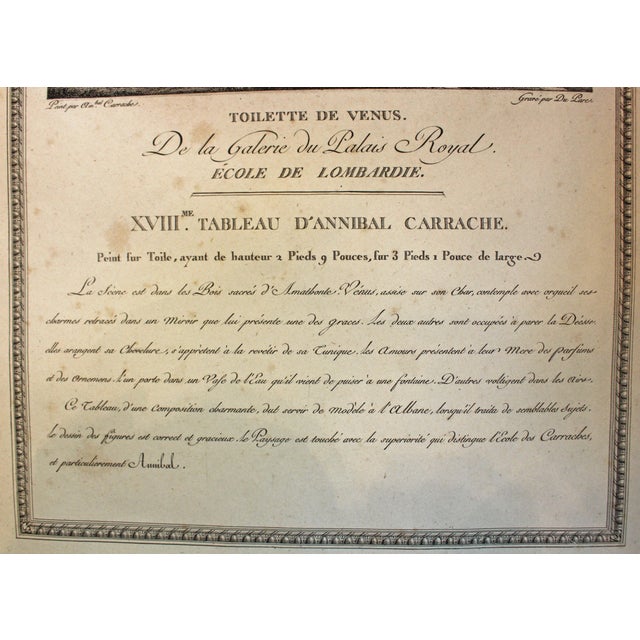 Peint par An.bal Carrache.
Gravé par Du Parc.
TOILETTE DE VENUS.
De la Galerie du Palais Royal.
ÉCOLE DE LOMBARDIE.
XVIII.ME TABLEAU D'ANNIBAL CARRACHE.
Peint sur Toile, ayant de hauteur 2 Pieds 9 Pouces, sur 3 Pieds 1 Pouce de large.
La Scène est dans les Bois sacrés d'Amathonte. Vénus, assise sur son Char, contemple avec orgueil ses
charmes retracés dans un Miroir que lui présente une des Graces. Les deux autres sont occupées à parer la Déesse
elles arangent sa Chevelure, s'apprêtent à la revêtir de sa Tunique. les Amours présentent à leur Mere des Parfums
et des Ornemens. l'un porte dans un Vase de l'Eau qu'il vient de puiser à une fontaine. D'autres voltigent dans les Airs.
Ce Tableau, d'une Composition charmante, dut servir de Modèle à l'Albane, lorsqu'il traita de semblables Sujets.
le dessin des figures est correct et gracieux. le Paysage est touché avec la superiorité qui distingue l'Ecole des Carraches,
et particulierement Annibal.